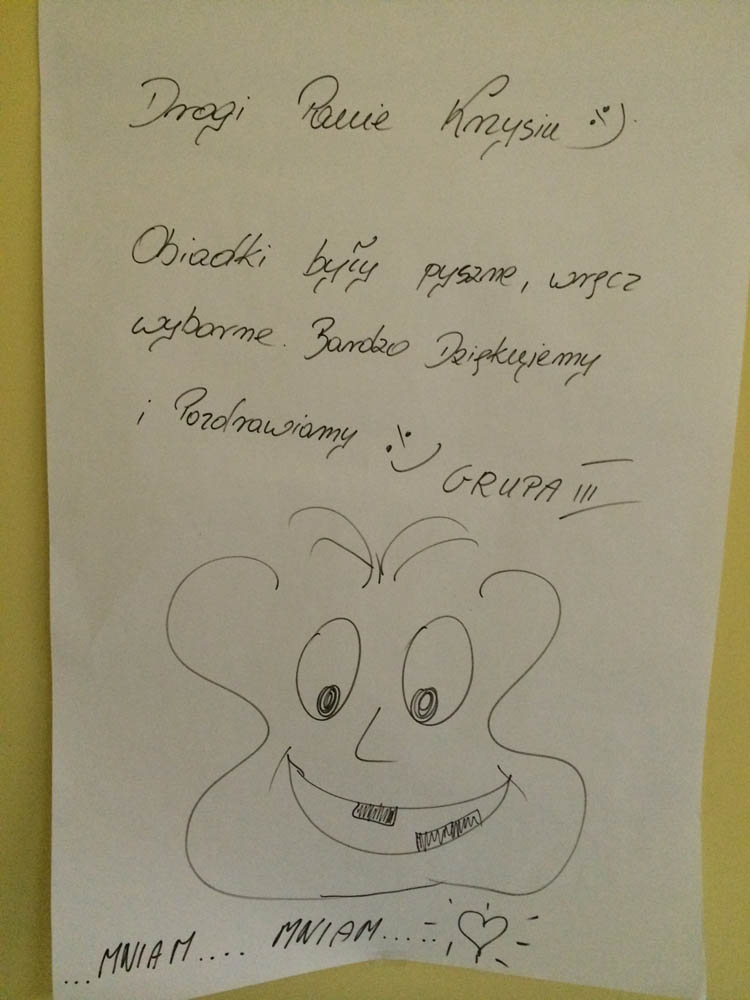 Drogi Panie Krzysiu :)
Obiadki były pyszne, wręcz
wyborne. Bardzo Dziękujemy
i Pozdrawiamy :)
GRUPA III
...MNIAM.... MNIAM.....